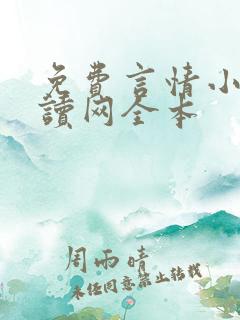 免費言情小
讀网全本
周雨晴
未经同意禁止转载